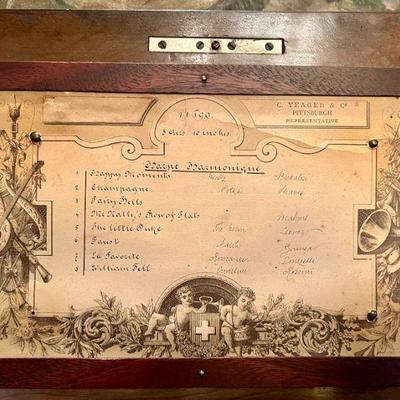 C. YEAGER & Co
PITTSBURGH
REPRESENTATIVE
8 Airs 10 inches
Harpe Harmonique
1 Happy Moments
2 Champagne Polka
3 Fairy Bells
4 McNally's Row of Flats
5 The Little Duke Lecocq
6 Faust March Gounod
7 La Favorite Romance Donizetti
8 William Tell Overture Rossini